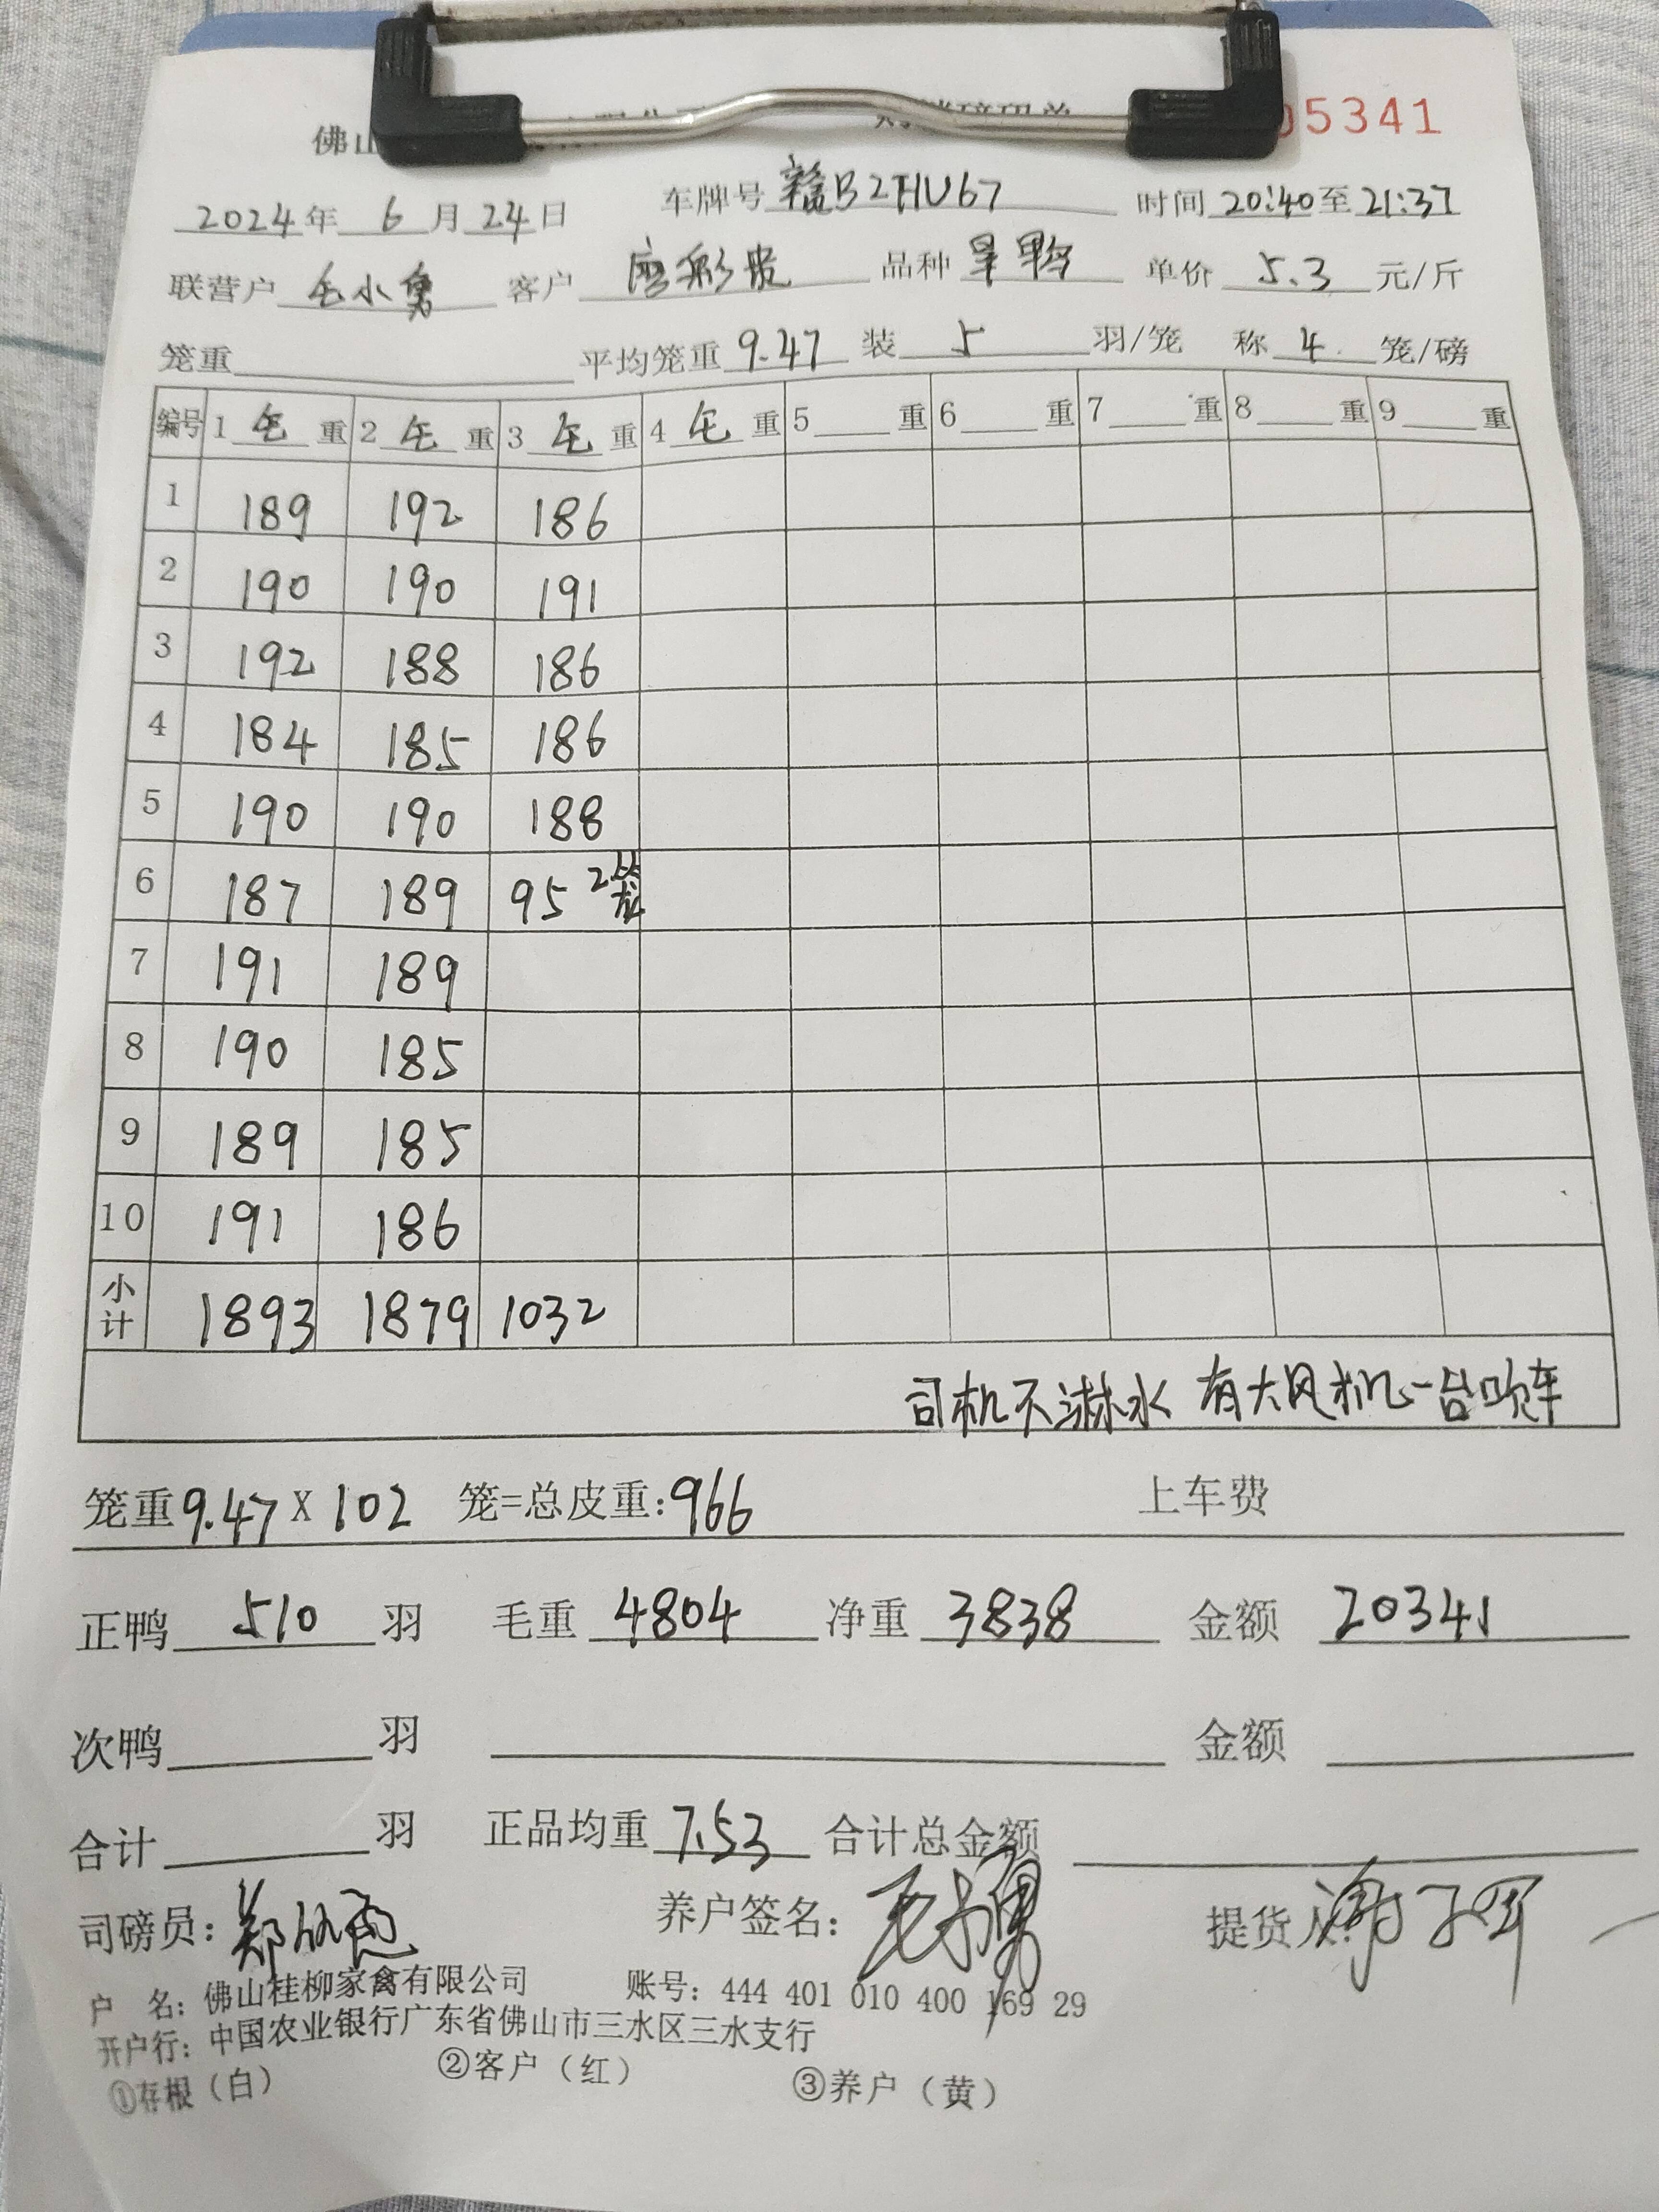 佛山
05341
2024年 6月24日 车牌号 赣B2HU67 时间 20:40至21:37
联营户 毛小勇 客户 廖彩贵 品种 旱鸭 单价 5.3 元/斤
笼重 平均笼重 9.47 装 5 羽/笼 称 4 笼/磅
编号 1 毛 重 2 毛 重 3 毛 重 4 毛 重 5 重 6 重 7 重 8 重 9 重
1 189 192 186
2 190 190 191
3 192 188 186
4 184 185 186
5 190 190 188
6 187 189 95 2笼
7 191 189
8 190 185
9 189 185
10 191 186
小计 1893 1879 1032
司机不淋水 有大风机一台吹车
笼重9.47 X 102 笼=总皮重:966 上车费
正鸭 510 羽 毛重 4804 净重 3838 金额 20341
次鸭 羽 金额
合计 羽 正品均重 7.53 合计总金额
司磅员: 郑 养户签名: 毛小勇 提货人: 谢
户 名: 佛山桂柳家禽有限公司 账号: 444 401 010 400 169 29
开户行: 中国农业银行广东省佛山市三水区三水支行
①存根（白） ②客户（红） ③养户（黄）